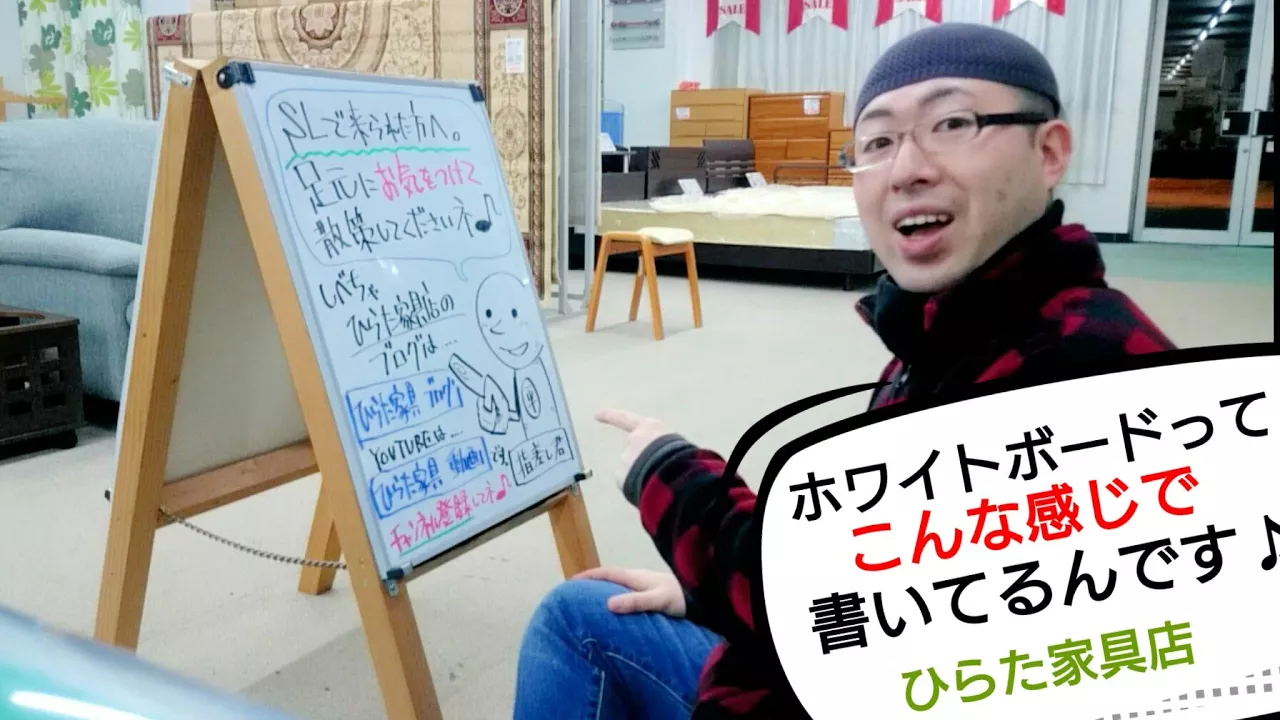 SLで来られた方へ。
足元にお気をつけて
散策してくださいネ♪
しべちゃ
ひらた家具店の
ブログは…
ひらた家具 ブログ
YOUTUBEは…
ひらた家具 動画
です。
指差し君
チャンネル登録してネ♪
SALE
SALE
ホワイトボードって
こんな感じで
書いてるんです♪
ひらた家具店